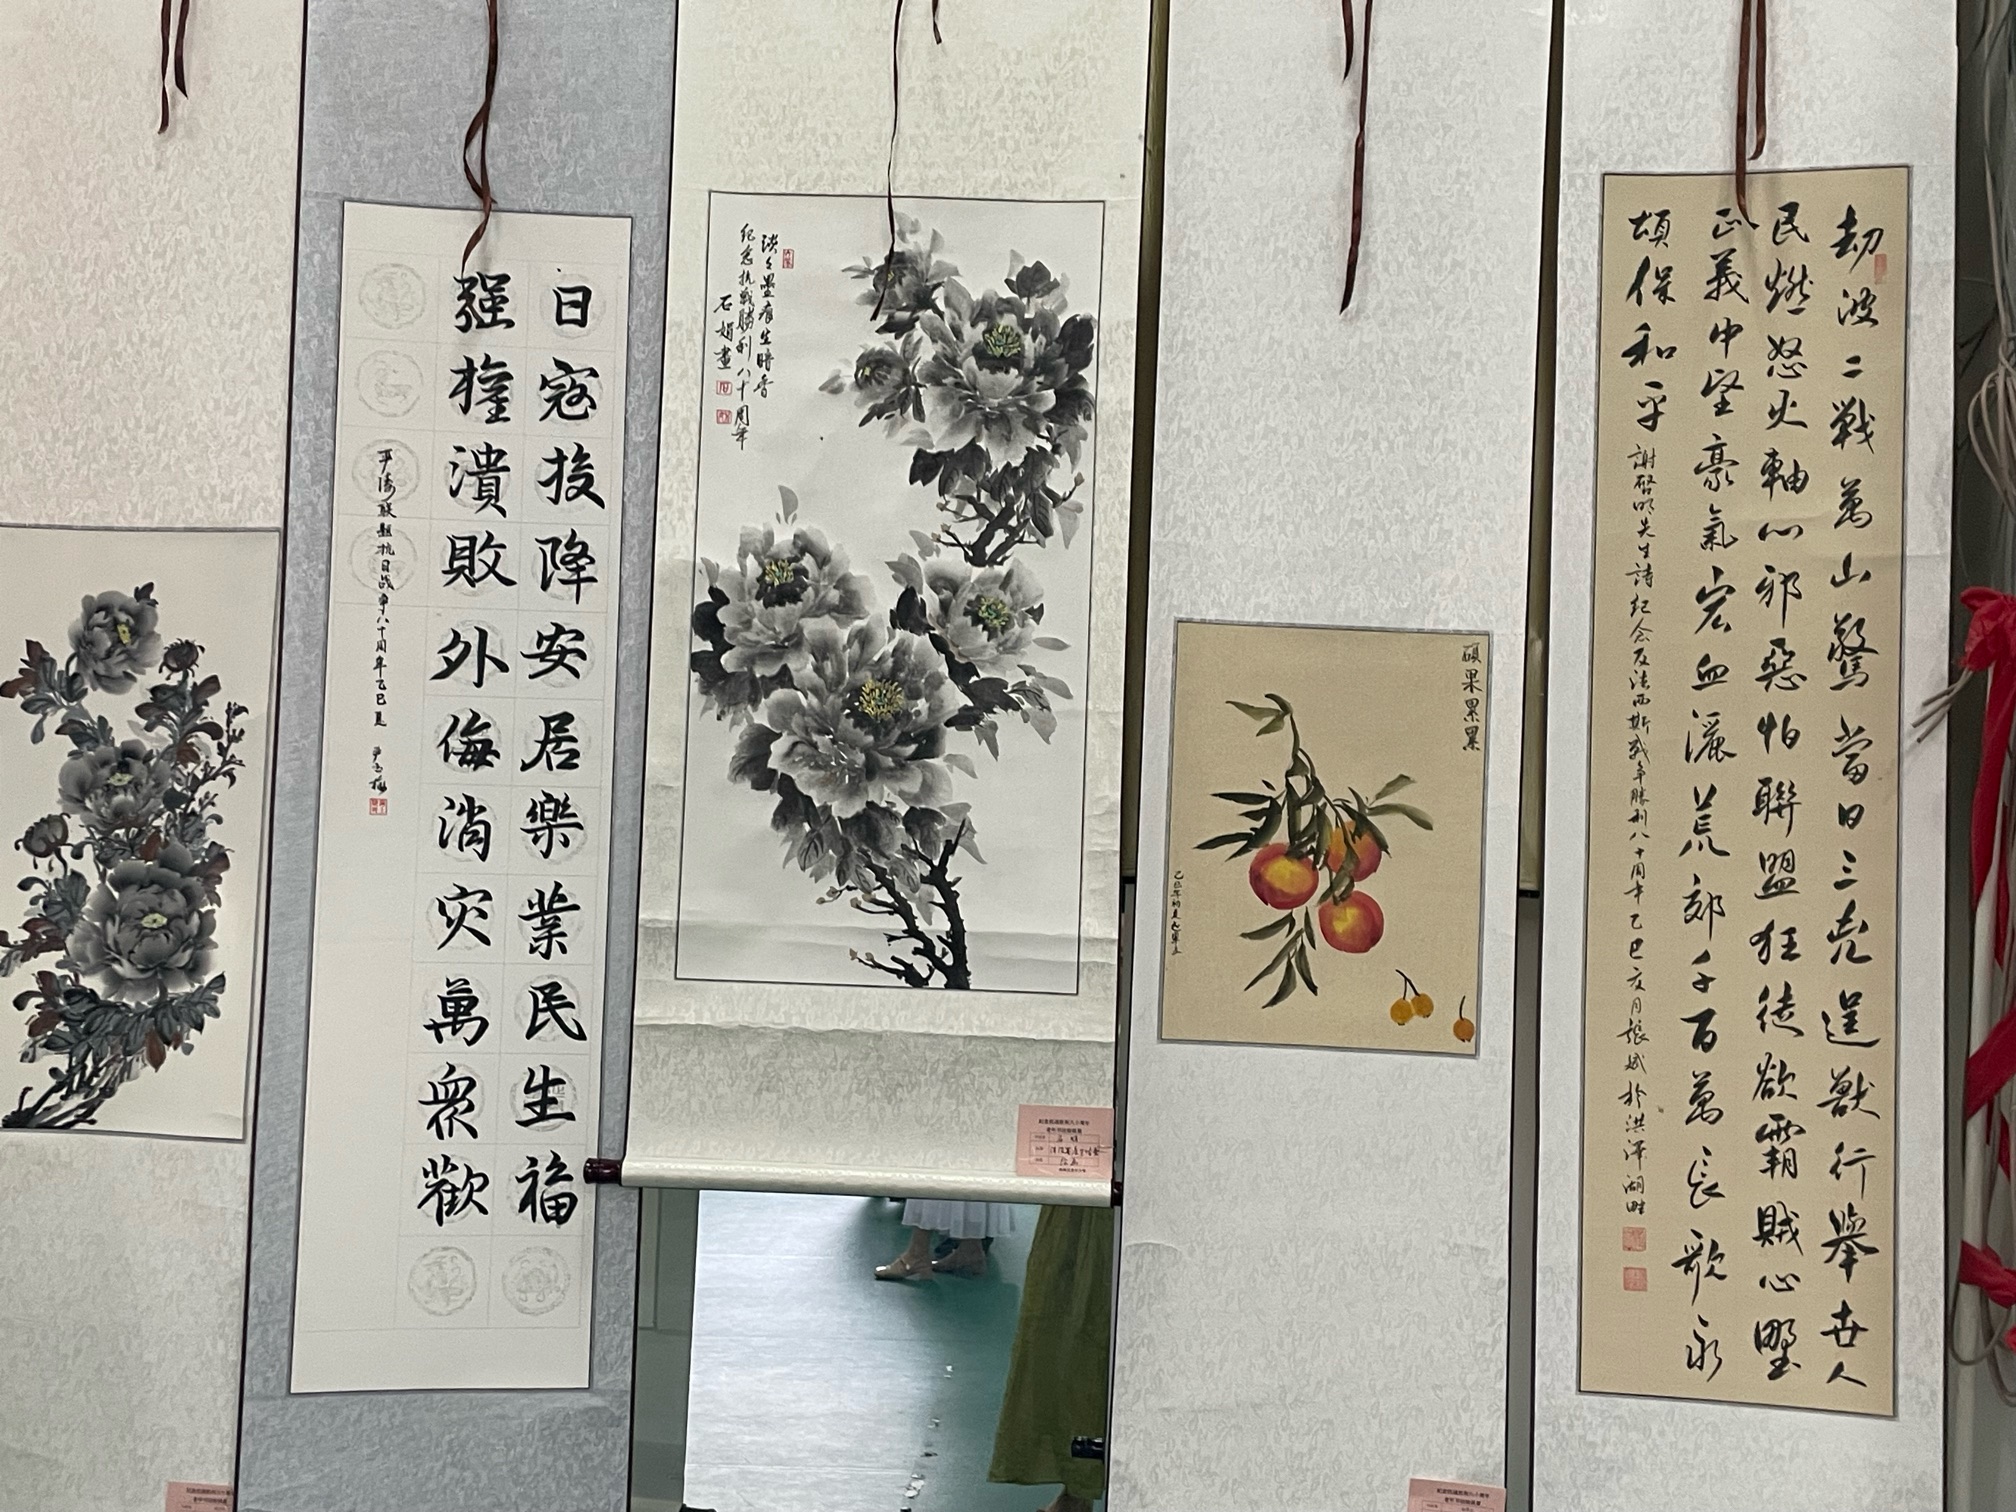 日寇投降安居樂業民生福
强權潰敗外侮消灾萬眾歡
聯題抗日战争八十周年乙巳夏
淡々墨痕生暗香
纪念抗戰勝利八十周年
石娟畫
硕果累累
劫波二戰萬山驚當日三堯逞獸行舉世人
民燃怒火軸心邪惡怕聯盟狂徒欲霸賊心壐
正義中堅豪氣宏血灑荒郊千百萬長歌永
頌保和平
謝啓明先生詩纪念反法西斯战争勝利八十周年乙巳夏月張斌於洪泽湖畔